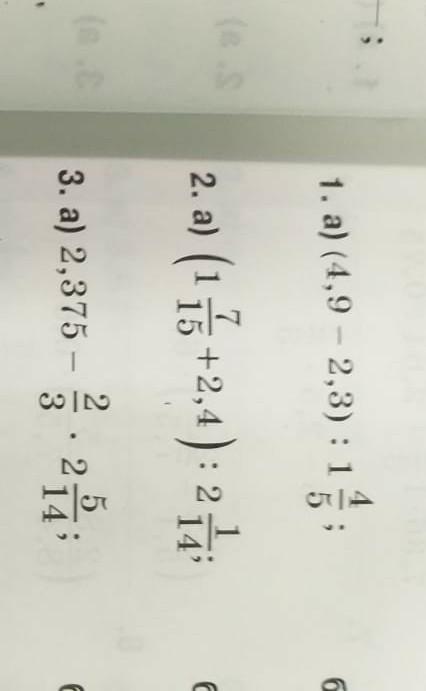 1. а) (4,9 − 2,3) : 1 4/5;
2. а) (1 7/15 + 2,4) : 2 1/14;
3. а) 2,375 − 2/3 · 2 5/14;